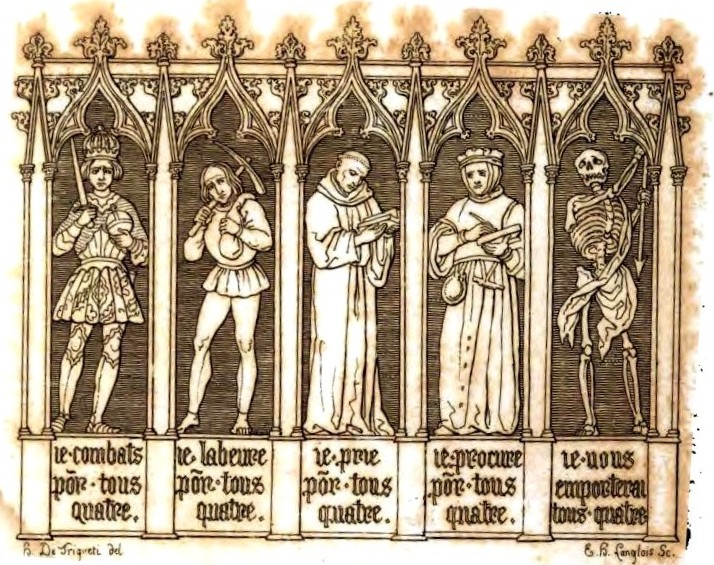 ie·combats
põr·tous
quatre.
ie·labeure
põr·tous
quatre.
ie·prie
põr·tous
quatre.
ie·procure
põr·tous
quatre.
ie·uous
emporterai
tous·quatre
H. De Triqueti del
E. H. Langlois Sc.